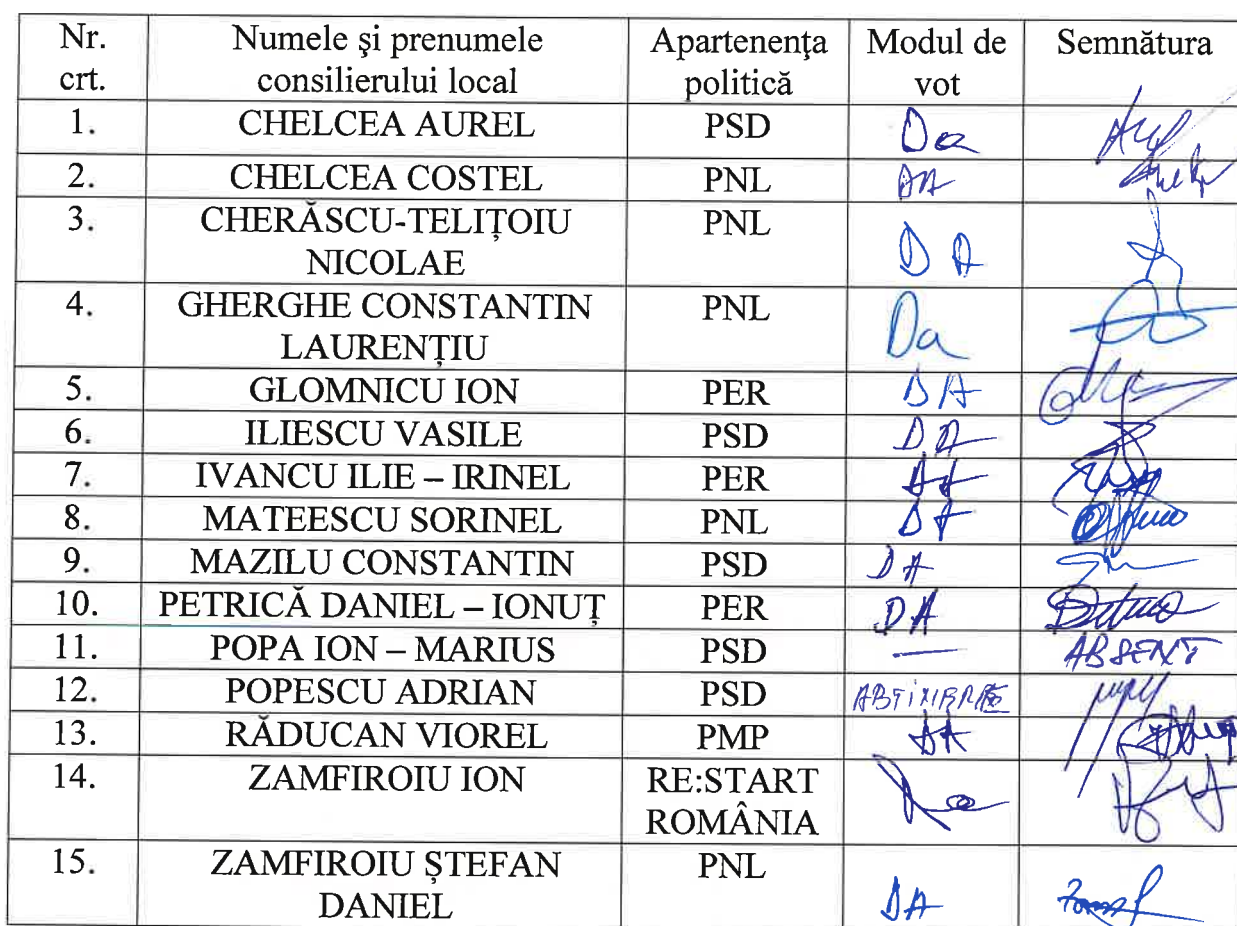 Nr. crt. Numele şi prenumele consilierului local Apartenenţa politică Modul de vot Semnătura
1. CHELCEA AUREL PSD Da
2. CHELCEA COSTEL PNL DA
3. CHERĂSCU-TELIȚOIU NICOLAE PNL DA
4. GHERGHE CONSTANTIN LAURENȚIU PNL Da
5. GLOMNICU ION PER DA
6. ILIESCU VASILE PSD DA
7. IVANCU ILIE – IRINEL PER DA
8. MATEESCU SORINEL PNL DA
9. MAZILU CONSTANTIN PSD DA
10. PETRICĂ DANIEL – IONUȚ PER DA
11. POPA ION – MARIUS PSD — ABSENT
12. POPESCU ADRIAN PSD
13. RĂDUCAN VIOREL PMP DA
14. ZAMFIROIU ION RE:START ROMÂNIA Da
15. ZAMFIROIU ȘTEFAN DANIEL PNL DA